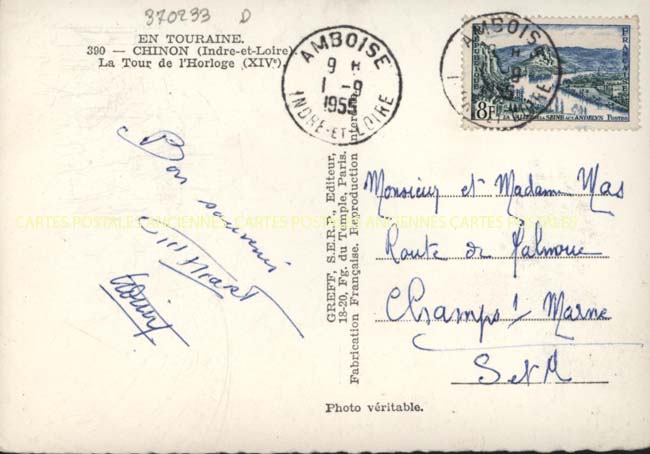 370233 D
EN TOURAINE.
390 — CHINON (Indre-et-Loire).
La Tour de l'Horloge (XIVe).
AMBOISE
9 H
1 - 9
1955
INDRE-ET-LOIRE
AMBOISE
1955
8F
LA VALLÉE DE LA SEINE AUX ANDELYS POSTES
Bon souvenir
GREFF, S.E.R.P., Editeur,
18-20, Fg. du Temple, Paris.
Fabrication Française. Reproduction interdite.
Monsieur et Madame Mas
Route de
Champs s/ Marne
S et M
CARTES POSTALES ANCIENNES CARTES POSTALES ANCIENNES CARTES POSTALES ANCIENNES
Photo véritable.